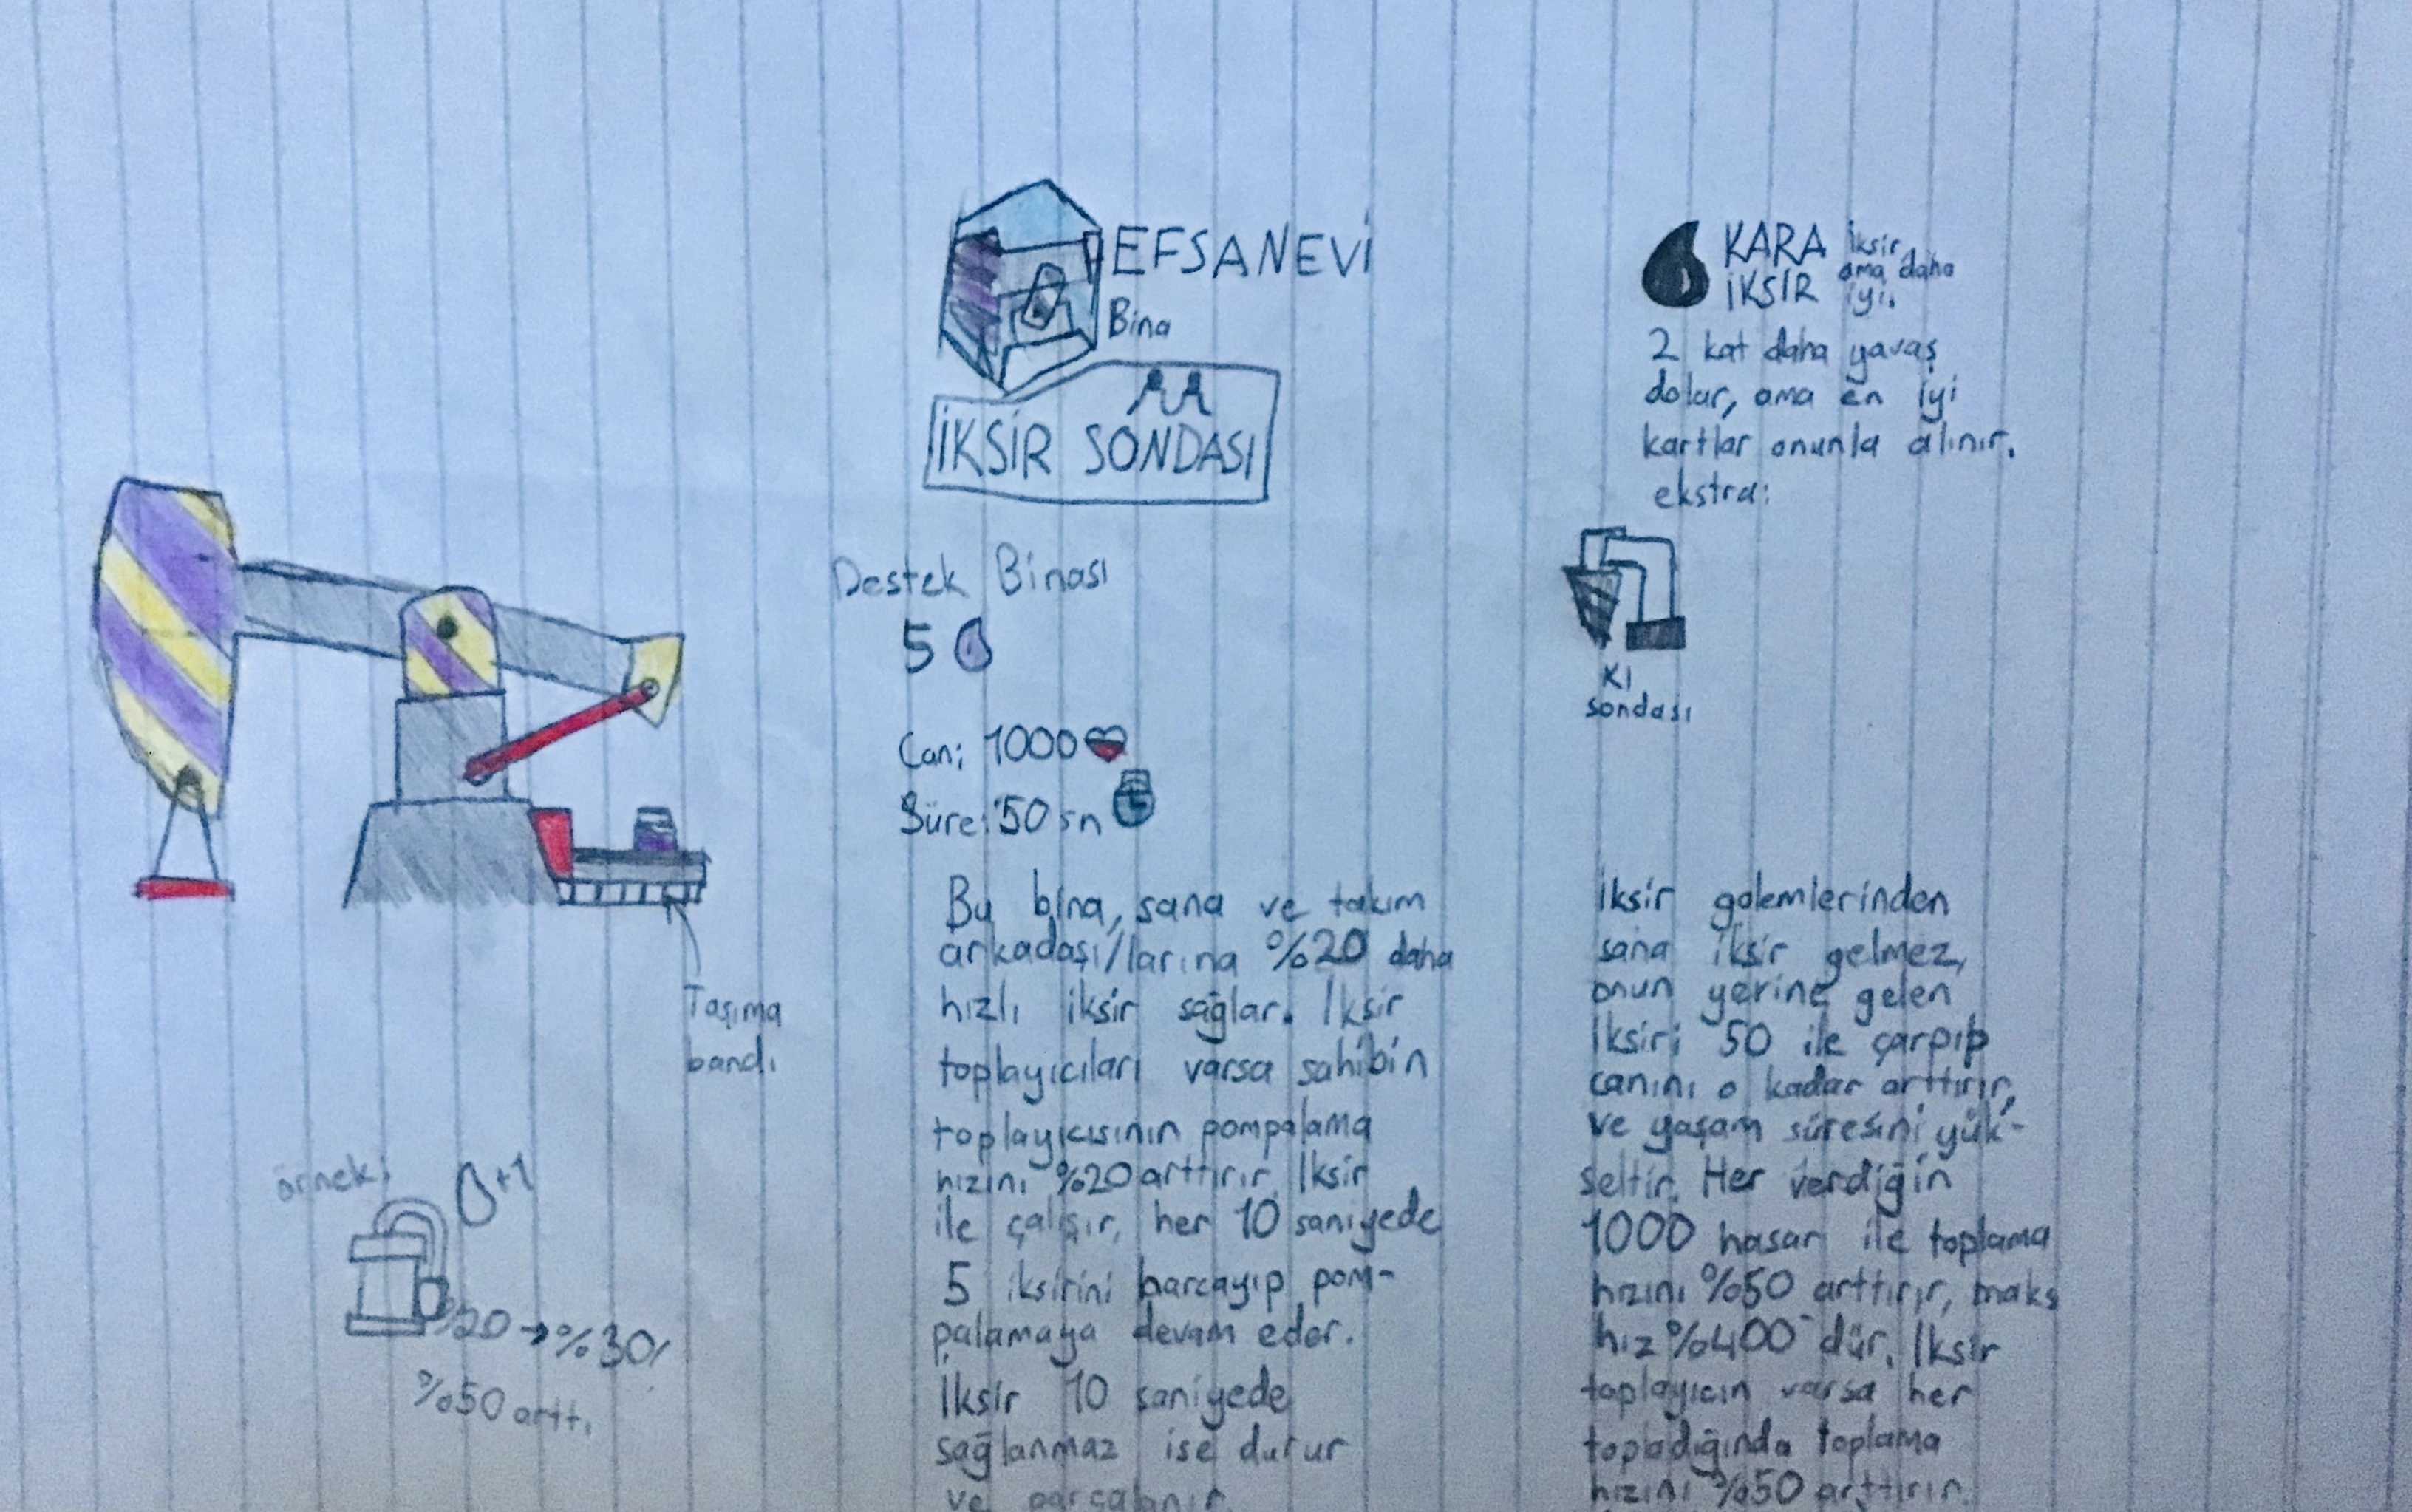 EFSANEVİ
Bina
İKSİR SONDASI
Destek Binası
5
Can: 1000
Süre: 50 sn
Bu bina, sana ve takım
arkadaşı/larına %20 daha
hızlı iksir sağlar. İksir
toplayıcıları varsa sahibin
toplayıcısının pompalama
hızını %20 arttırır. İksir
ile çalışır, her 10 saniyede
5 iksirini harcayıp pom-
palamaya devam eder.
İksir 10 saniyede
sağlanmaz ise durur
ve parçalanır.
Taşıma
bandı
örnek:
+1
%20 → %30
%50 arttı
KARA İKSİR
iksir
ama daha
iyi.
2 kat daha yavaş
dolar, ama en iyi
kartlar onunla alınır.
ekstra:
KI
sondası
İksir golemlerinden
sana iksir gelmez,
onun yerine gelen
iksiri 50 ile çarpıp
canını o kadar arttırır,
ve yaşam süresini yük-
seltir. Her verdiğin
1000 hasar ile toplama
hızını %50 arttırır, maks
hız %400'dür. İksir
toplayıcın varsa her
topladığında toplama
hızını %50 arttırır.